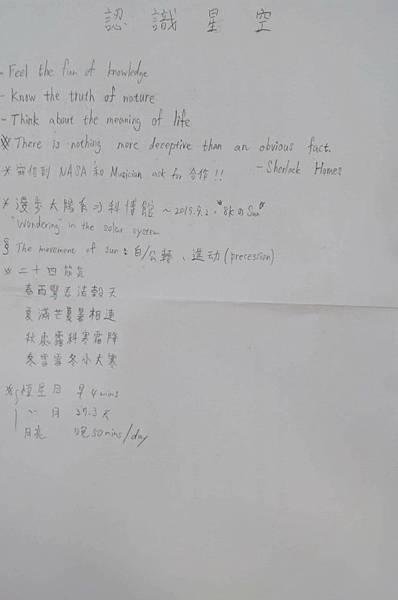 認識星空
- Feel the fun of knowledge
- Know the truth of nature
- Think about the meaning of life
※ There is nothing more deceptive than an obvious fact.
- Sherlock Homes
* 寄信到 NASA 和 Musician ask for 合作!!
* 漫步太陽系 科博館 ~ 2019.9.2. "8K の Sun"
"Wondering" in the solar system
§ The movement of sun: 自/公轉、進动 (precession)
※ 二十四節氣
春雨驚春清穀天
夏滿芒夏暑相連
秋處露秋寒霜降
冬雪雪冬小大寒
※ 恆星日 早 4 mins
〃 月 27.3 天
月兆 晚 50 mins/day